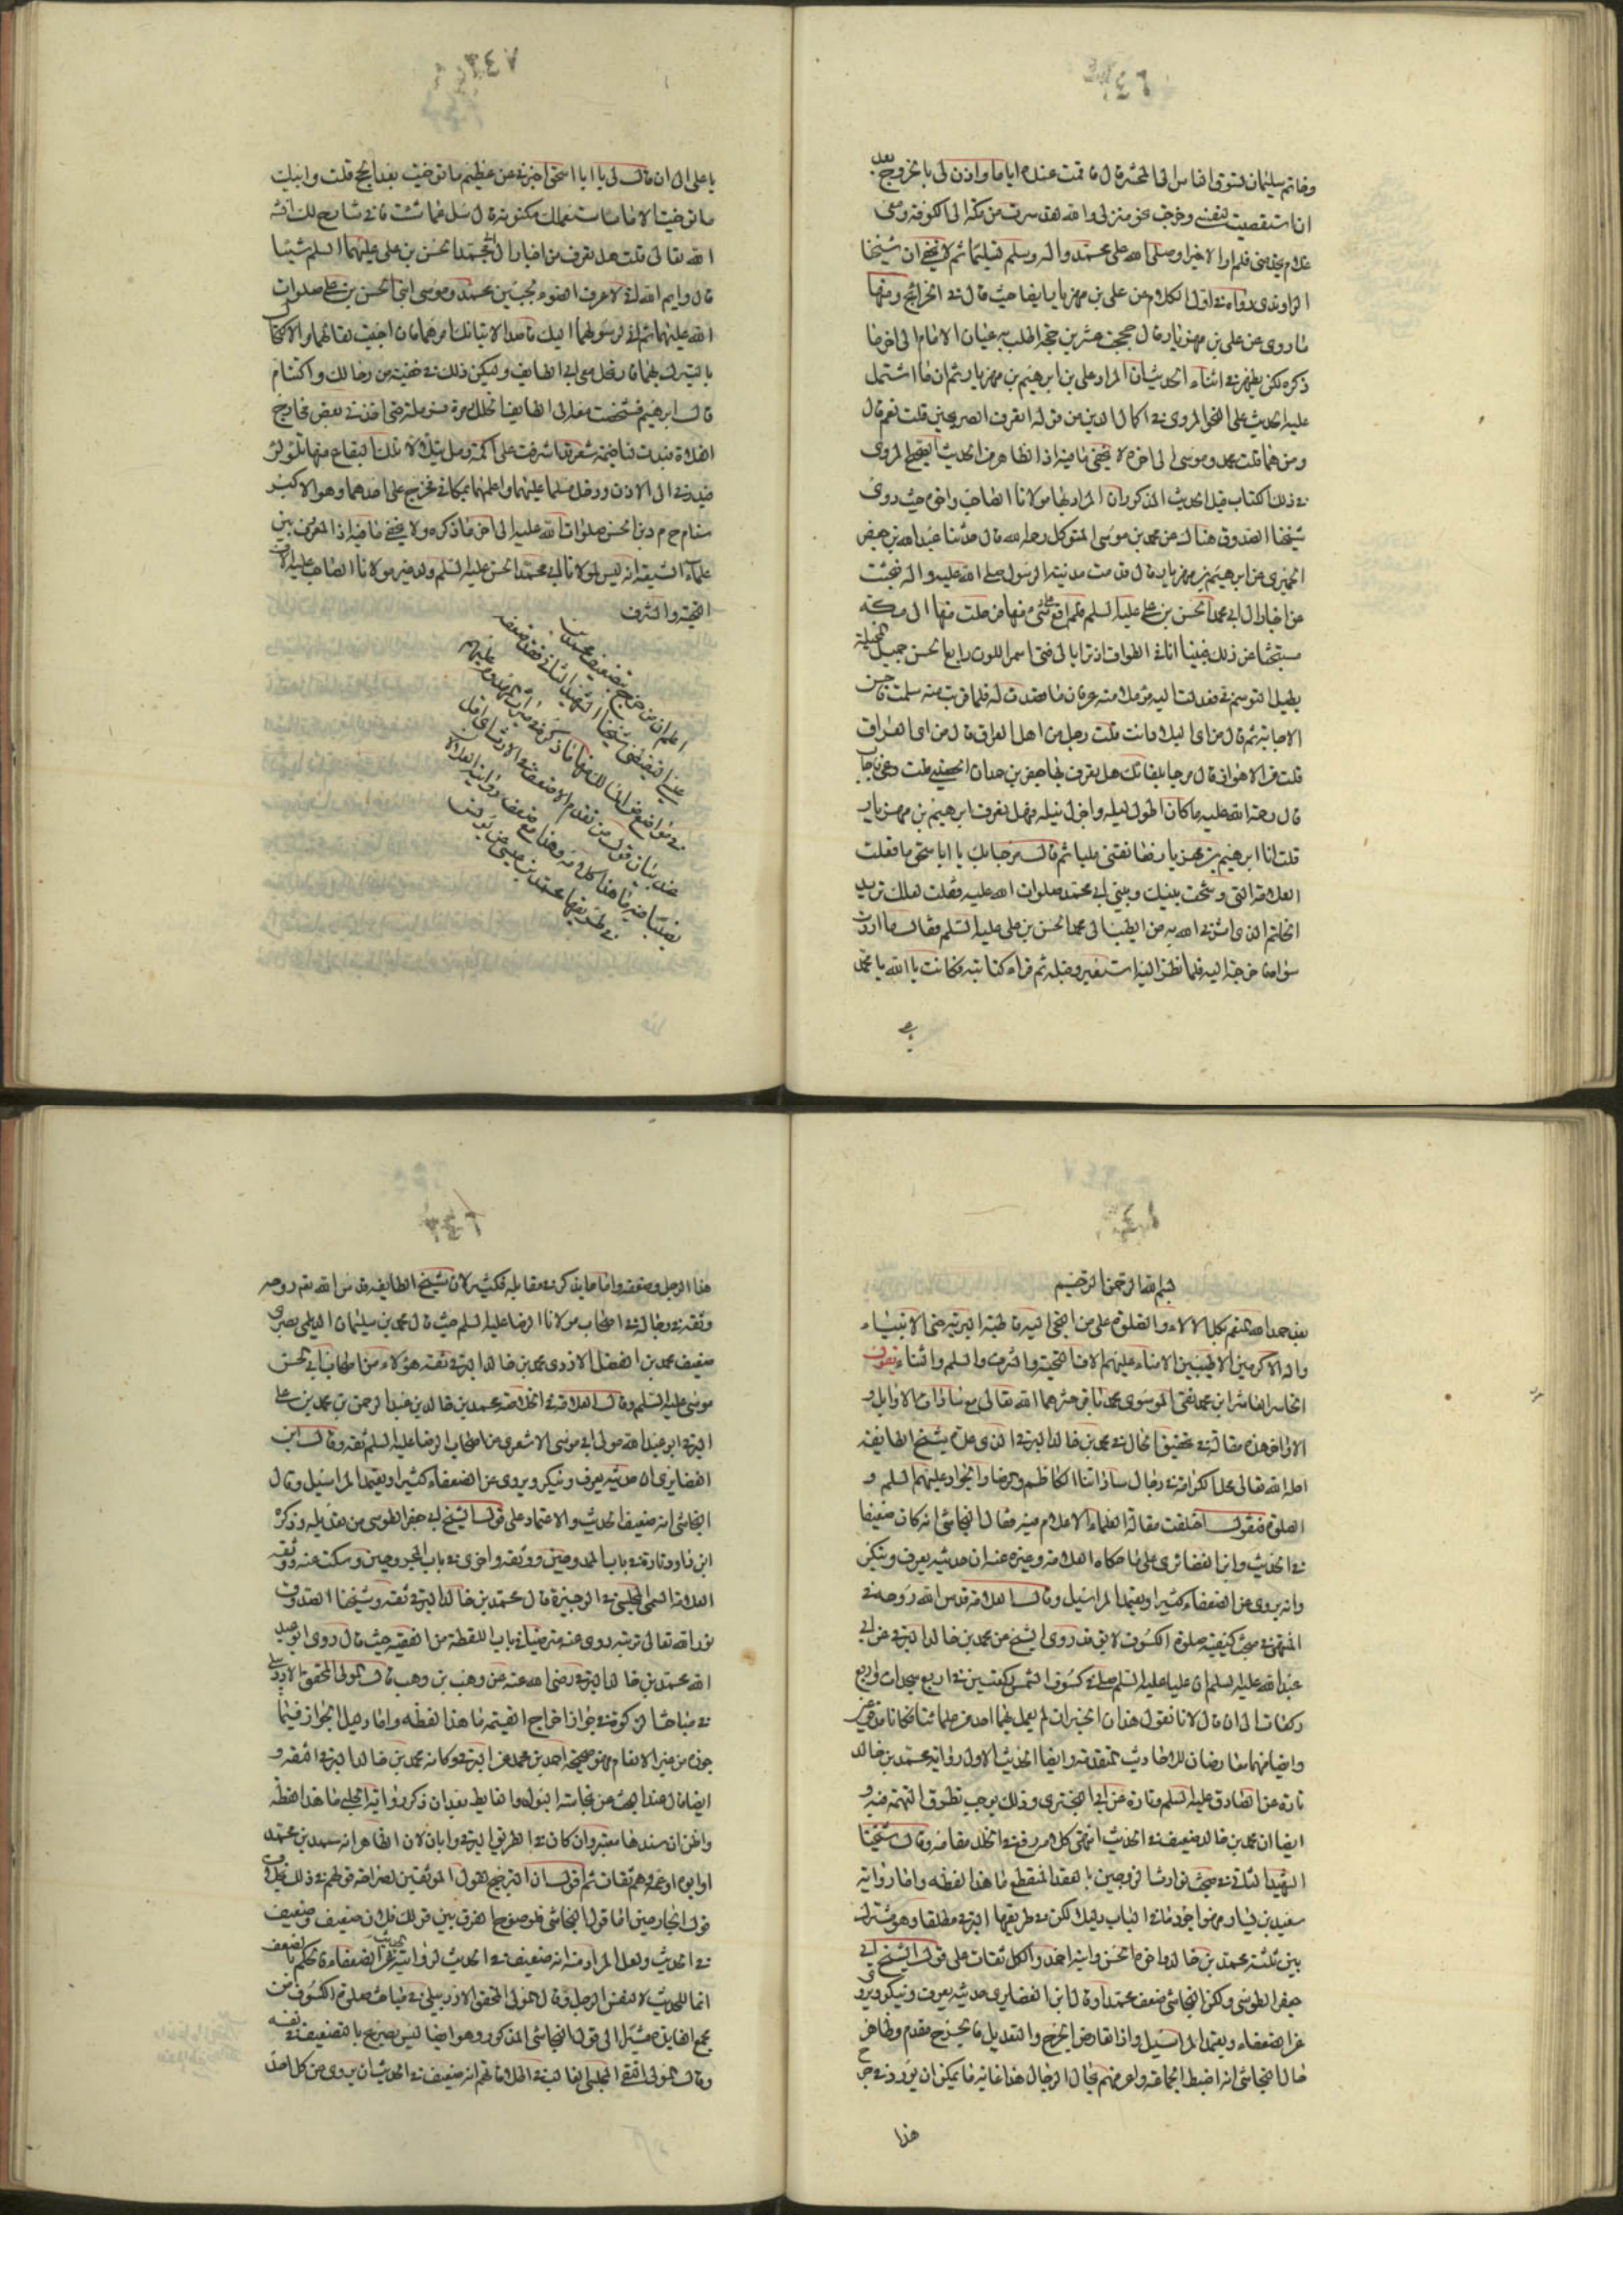 وخاتم سليمان ليسوق الناس الى المحشر قال فاقمت عنده اياما واذن لى بالخروج بعد
ان استقصيت لنفسى وخرجت نحو منزلى والله لقد سرت من مكة الى الكوفة ومعى
غلام يخدمنى فلم ار الا خيرا وصلى الله على محمد واله وسلم تسليما ثم لا يخفى ان شيخنا
الراوندى رواه فى اول الكلام عن على بن مهزيار ايضا حيث قال فى الخرايج ومنها
ما روى عن على بن مهزيار قال حججت عشرين حجة اطلب به عيان الامام الى اخر ما
ذكره لكن يظهر فى اثناء الحديث ان المراد على بن ابرهيم بن مهزيار ثم ان ما اشتمل
عليه الحديث على النحو المروى فى اكمال الدين من قوله اتعرف الصريحين قلت نعم قال
ومن هما قلت محمد وموسى الى اخره لا يخفى ما فيه اذ الظاهر من الحديث الصحيح المروى
فى ذلك الكتاب قبل الحديث المذكور ان المراد بهما مولانا الصاحب واخوه حيث روى
شيخنا الصدوق هناك عن محمد بن موسى المتوكل رحمه الله قال حدثنا عبد الله بن جعفر
الحميرى عن ابرهيم بن مهزيار قال قدمت مدينة الرسول صلى الله عليه واله فبحثت
عن اخبار ال ابى محمد الحسن بن على عليه السلم فلم اقع على شئ منها فرحلت منها الى مكة
مستبحثا عن ذلك فبينا انا فى الطواف اذ ترايا لى فتى اسمر اللون رايع الحسن جميل المخيلة
يطيل التوسم فى فعدلت اليه مؤملا منه عرفان ما قصدت له فلما قربت منه سلمت فاحسن
الاجابة ثم قال من اى البلاد انت قلت رجل من اهل العراق قال من اى العراق
قلت من الاهواز قال مرحبا بلقائك هل تعرف بها جعفر بن حمدان الحصينى قلت دعى فاجاب
قال رحمة الله عليه ما كان اطول ليله واجزل نيله فهل تعرف ابرهيم بن مهزيار
قلت انا ابرهيم بن مهزيار فعانقنى مليا ثم قال مرحبا بك يا ابا اسحق ما فعلت
العلامة التى وشجت بينك وبين ابى محمد صلوات الله عليه فقلت لعلك تريد
الخاتم الذى اثرنى الله به من الطيب ابى محمد الحسن بن على عليه السلم فقال ما اردت
سواه فاخرجته اليه فلما نظر اليه استعبر وقبله ثم قراء كتابته فكانت يا الله يا محمد
يا على الى ان قال لى يا ابا اسحق اخبرنى عن عظيم ما توخيت بعد الحج قلت وابيك
ما توخيت الا ما ساستعلمك مكنونه قال سل عما شئت فانى شارح لك انشاء
الله تعالى قلت هل تعرف من اخبار ال ابى محمد الحسن بن على عليهما السلم شيئا
قال وايم الله انى لاعرف الضوء بجبين محمد وموسى ابنى الحسن بن على صلوات
الله عليهما ثم انى لرسولهما اليك قاصدا لانبائك امرهما فان احببت لقائهما والاكتحال
بالتبرك بهما فارتحل معى الى الطايف وليكن ذلك فى خفية من رجالك واكتتام
قال ابرهيم فشخصت معه الى الطايف اتخلل رملة فرملة حتى اخذ فى بعض مخارج
الفلاة فبدت لنا خيمة شعر قد اشرفت على اكمة رمل يتلألأ تلك البقاع منها تلألؤا
فبدرنى الى الاذن ودخل مسلما عليهما واعلمهما بمكانى فخرج على احدهما وهو الاكبر
سنا م ح م د بن الحسن صلوات الله عليه الى اخر ما ذكره ولا يخفى ما فيه اذ المعروف بين
علماء الشيعة انه ليس لمولانا ابى محمد الحسن عليه السلم ولد غير مولانا الصاحب عليه الاف
التحية والشرف
بسم الله الرحمن الرحيم
بعد حمد الله المنعم بكل الالاء والصلوة على من التجى اليه قاطبة البرية حتى الانبياء
واله الاكرمين الاطيبين الامناء عليهم الاف التحية والشرف والسلم والثناء يقول
الخاسر العاشر ابن محمد نقى الموسوى محمد باقر حشرهما الله تعالى مع سادات الاوايل و
الاواخر هذه مقالة فى تحقيق الحال فى محمد بن خالد البرقى الذى عده شيخ الطايفة
احله الله تعالى محل الكرامة فى رجال ساداتنا الكاظم والرضا والجواد عليهم السلم و
الصلوة فنقول اختلفت مقالة العلماء الاعلام فيه فقال النجاشى انه كان ضعيفا
فى الحديث وابن الغضائرى على ما حكاه العلامة وغيره عنه ان حديثه يعرف وينكر
وانه يروى عن الضعفاء كثيرا ويعتمد المراسيل وقال العلامة قدس الله روحه فى
المنتهى فى مبحث كيفية صلوة الكسوف لا يقال روى الشيخ عن محمد بن خالد البرقى عن ابى
عبد الله عليه السلم ان عليا عليه السلم صلى فى كسوف الشمس ركعتين فى اربع سجدات واربع
ركعات الى ان قال لانا نقول هذان الخبران لم يعمل بهما احد من علمائنا فكانا مدفوعين
وايضا فهما معارضان للاحاديث المتقدمة وايضا الحديث الاول رواية محمد بن خالد
تارة عن الصادق عليه السلم وتارة عن ابى البخترى وذلك يوجب تطرق التهمة فيه و
ايضا ان محمد بن خالد ضعيف فى الحديث انتهى كلامه رفع فى الخلد مقامه وقال شيخنا
الشهيد الثانى فى مبحث توارث الزوجين بالعقد المنقطع ما هذا لفظه واما رواية
سعيد بن يسار فهو اجود ما فى الباب دليلا لكن فى طريقها البرقى مطلقا وهو مشترك
بين ثلثة محمد بن خالد واخوه الحسن وابنه احمد والكل ثقات على قول الشيخ ابى
جعفر الطوسى ولكن النجاشى ضعف محمدا وقال ابن الغضايرى حديثه يعرف وينكر ويروى
عن الضعفاء ويعتمد المراسيل واذا تعارض الجرح والتعديل فالجرح مقدم وظاهر
حال النجاشى انه اضبط الجماعة واعرفهم بحال الرجال هذا غاية ما يمكن ان يورد فى جرح
هذا
هذا الرجل وضعفه واما ما يذكر فى مقابله فكثير لان شيخ الطايفة قدس الله تعالى روحه
وثقه فى رجاله فى اصحاب مولانا الرضا عليه السلم حيث قال محمد بن سليمان الديلمى بصرى
ضعيف محمد بن الفضل الازدى محمد بن خالد البرقى ثقة هؤلاء من اصحاب ابى الحسن
موسى عليه السلم وقال العلامة فى الخلاصة محمد بن خالد بن عبد الرحمن بن محمد بن على
البرقى ابو عبد الله مولى ابى موسى الاشعرى من اصحاب الرضا عليه السلم ثقة وقال ابن
الغضايرى ان حديثه يعرف وينكر ويروى عن الضعفاء كثيرا ويعتمد المراسيل وقال
النجاشى انه ضعيف الحديث والاعتماد على قول الشيخ ابى جعفر الطوسى من تعديله وذكره
ابن داود تارة فى باب الممدوحين ووثقه واخرى فى باب المجروحين وسكت عنه ووثقه
العلامة السمى المجلسى فى الوجيزة قال محمد بن خالد البرقى ثقة وشيخنا الصدوق
نور الله تعالى تربته روى عنه مترضيا فى باب اللقطة من الفقيه حيث قال روى ابو عبد
الله محمد بن خالد البرقى رضى الله عنه عن وهب بن وهب قال المولى المحقق الاردبيلى
فى مباحث الزكوة فى جواز اخراج القيمة ما هذا لفظه واما دليل الجواز فيما
جوز من غير الانعام فهو صحيحة احمد بن محمد عن البرقى وكانه محمد بن خالد البرقى الثقة و
ايضا قال عند البحث عن نجاسة البول والغايط بعد ان ذكر رواية الحلبى ما هذا لفظه
واظن ان سندها معتبر وان كان فى الطريق البرقى وابان لان الظاهر انه محمد بن محمد
او ابوه او عمه وهم ثقات ثم اقول ان الترجيح لقول الموثقين لصراحة قولهم فى ذلك بخلاف
قول الجارحين اما قول النجاشى فلوضوح الفرق بين قولك فلان ضعيف وضعيف
فى الحديث ولعل المراد منه انه ضعيف فى الحديث لروايته عن الضعفاء فالحكم بالضعف
انما للحديث لا لنفس الرجل وقال المولى المحقق الاردبيلى فى مباحث صلوة الكسوف من
مجمع الفايدة مشيرا الى قول النجاشى المذكور وهو ايضا ليس بصريح بالتضعيف فى نفسه
وقال المولى التقى المجلسى الغالب فى اطلاقاتهم انه ضعيف فى الحديث ان يروى عن كل احد